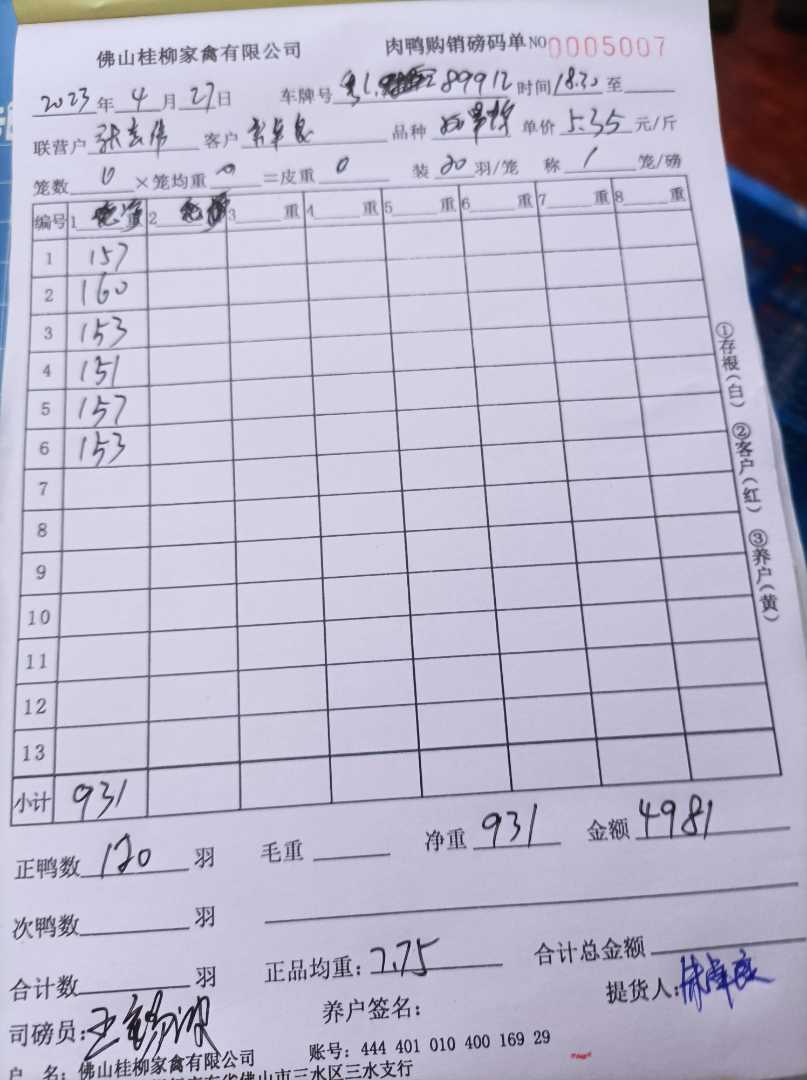 佛山桂柳家禽有限公司 肉鸭购销磅码单 NO 0005007
2023年 4月 27日 车牌号 89912 时间 18:30 至
联营户 客户 品种 单价 5.35 元/斤
笼数 0 ×笼均重 0 =皮重 0 装 20 羽/笼 称 1 笼/磅
编号 1 重 2 重 3 重 4 重 5 重 6 重 7 重 8 重
1 157
2 160
3 153
4 151
5 157
6 153
7
8
9
10
11
12
13
小计 931
①存根(白) ②客户(红) ③养户(黄)
正鸭数 120 羽 毛重 净重 931 金额 4981
次鸭数 羽
合计数 羽 正品均重: 7.75 合计总金额
司磅员: 养户签名: 提货人:
户 名: 佛山桂柳家禽有限公司 账号: 444 401 010 400 169 29
省佛山市三水区三水支行